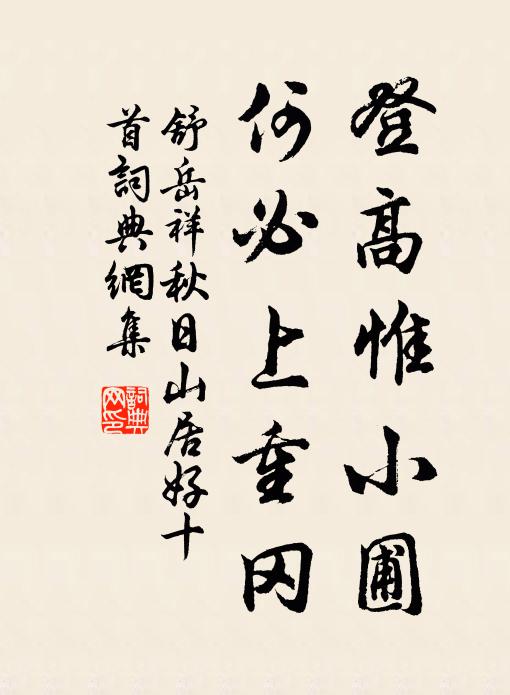 登高惟小圃
何必上重冈
舒岳祥秋日山居好十
首詞典網集
詞典
网印